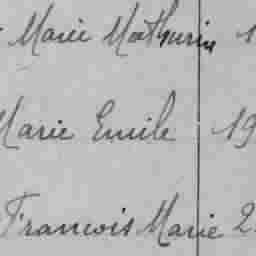 Marie Mathurin 1
Marie Emile 19
Francois Marie 2